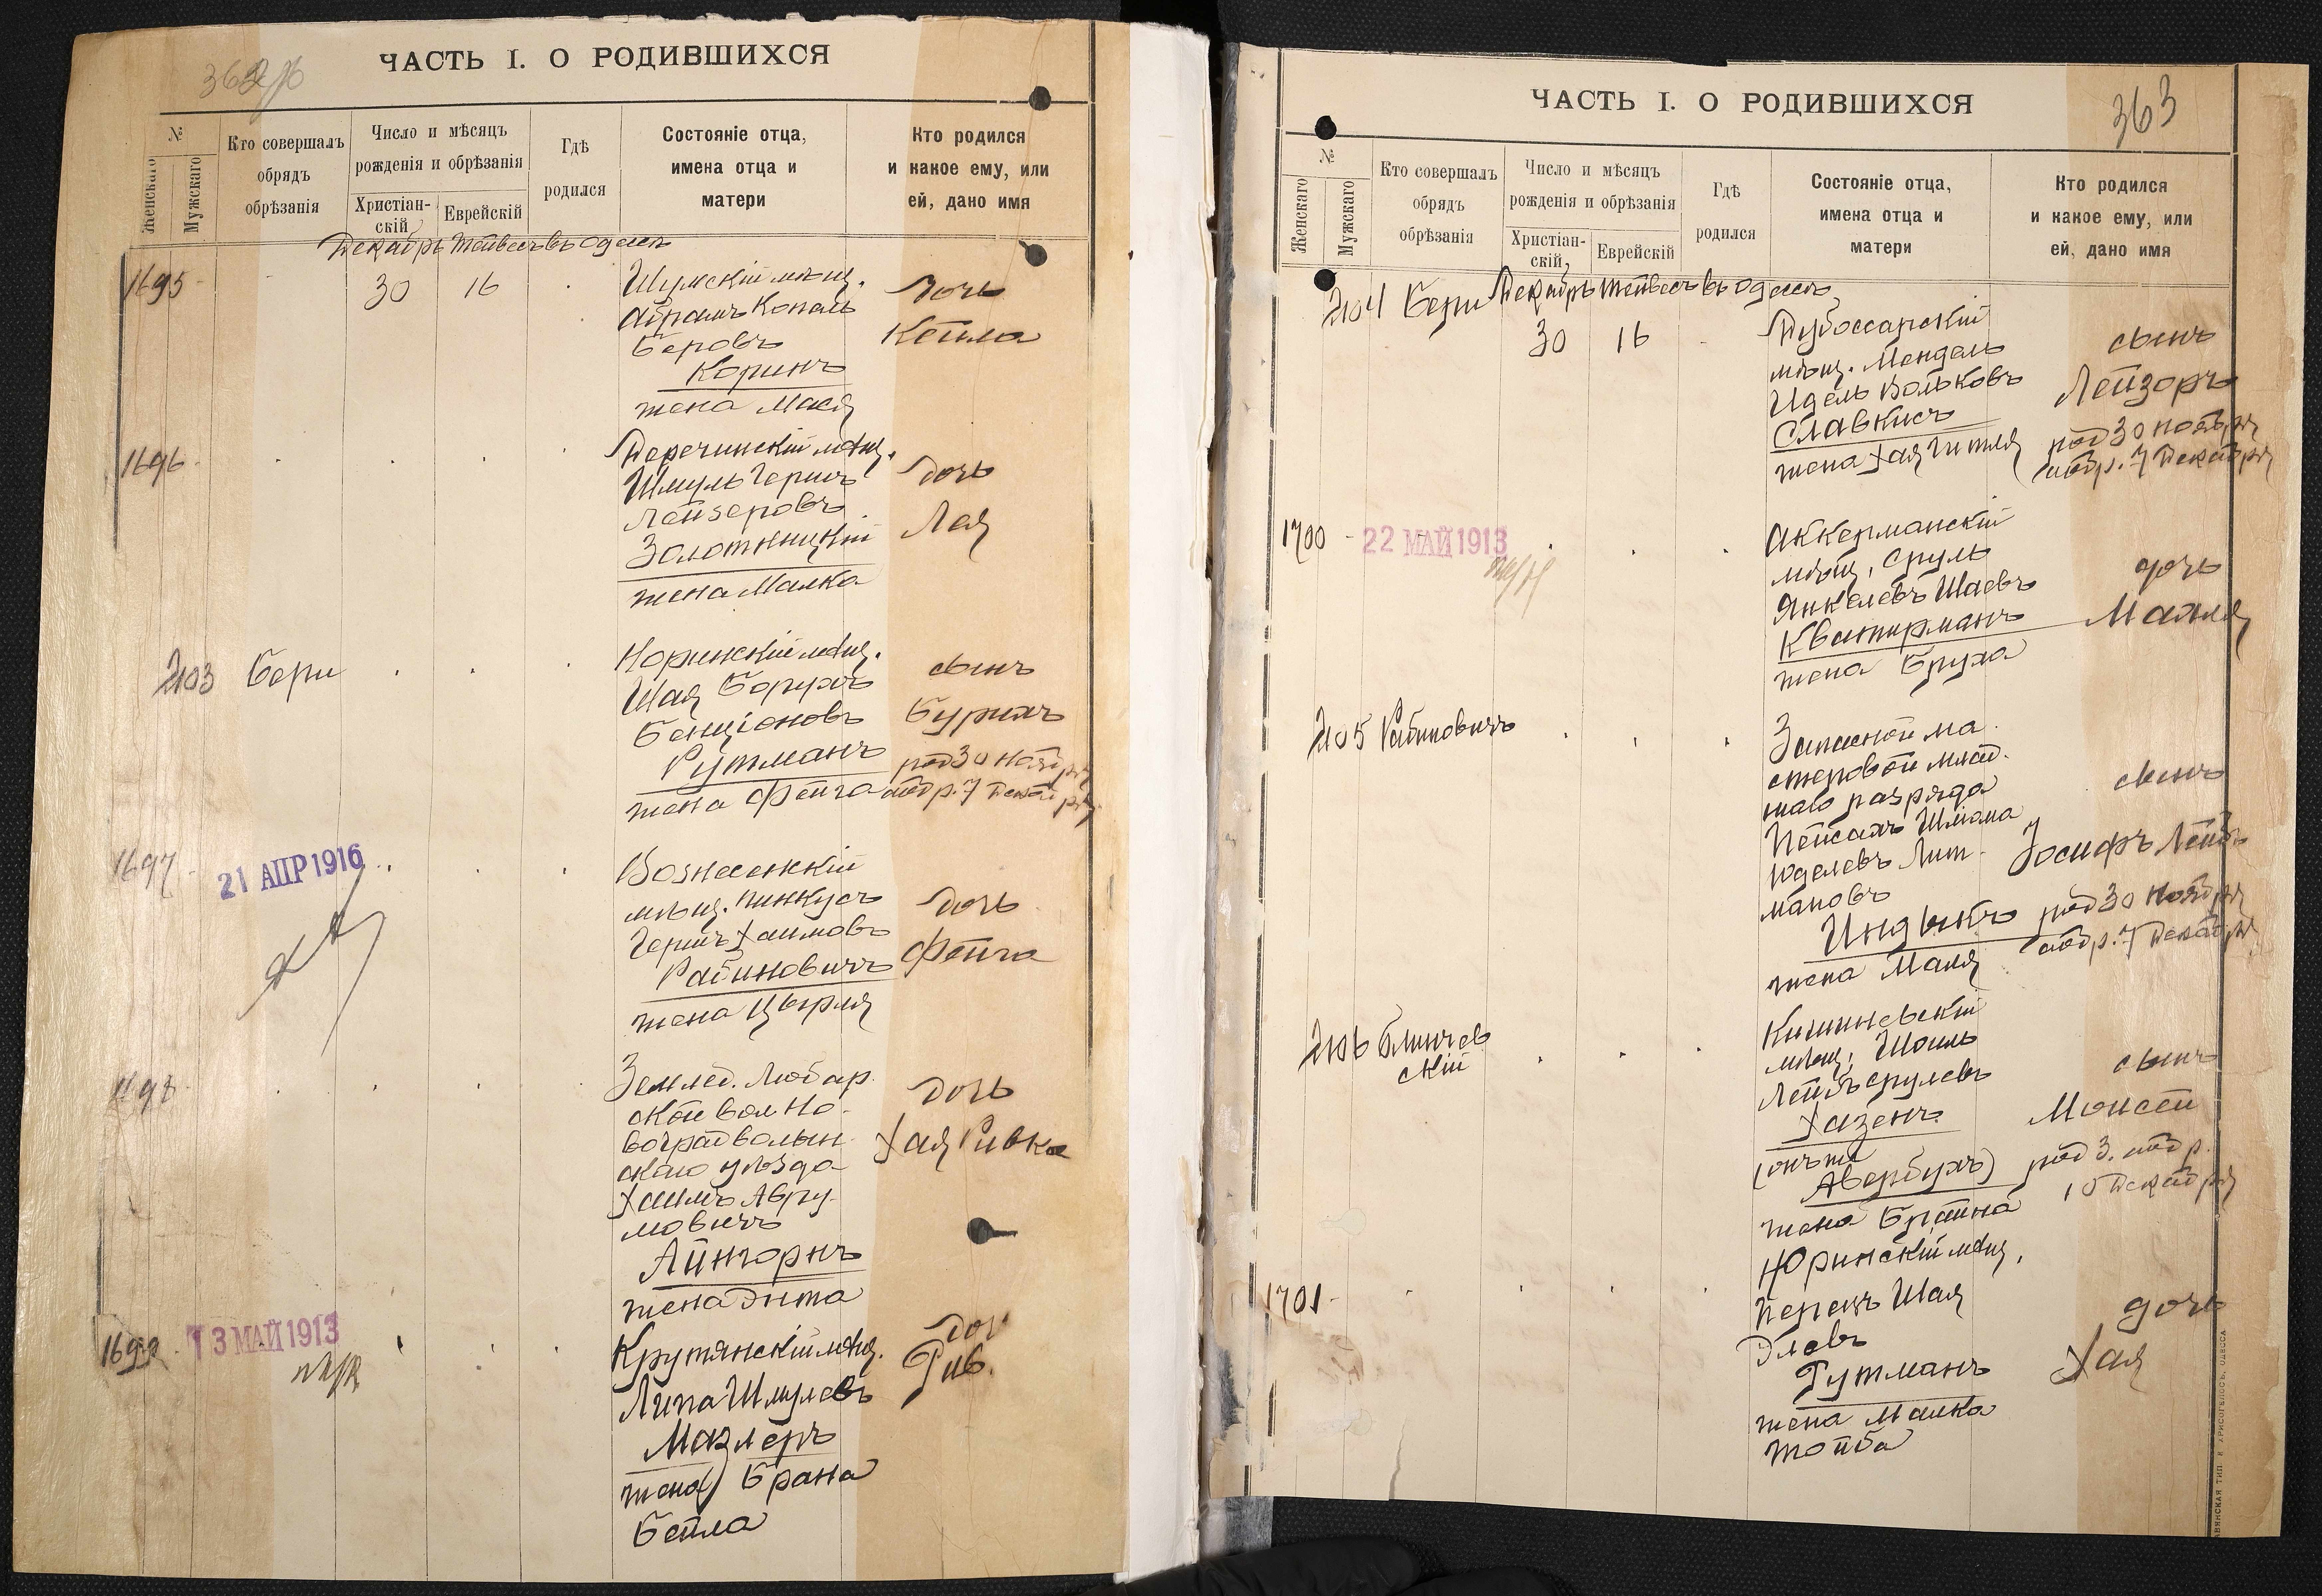 362 об
ЧАСТЬ I. О РОДИВШИХСЯ
№
Женскаго
Мужскаго
Кто совершалъ
обрядъ
обрѣзанія
Число и мѣсяцъ
рожденія и обрѣзанія
Христіан-
скій
Еврейскій
Гдѣ
родился
Состояніе отца,
имена отца и
матери
Кто родился
и какое ему, или
ей, дано имя
Декабрь Тейвесъ въ Одессѣ
1695
30
16
Шумскій мѣщ.
Абрамъ Копель
Беровъ
Коринъ
жена Мася
дочь
Кейла
1696
Деречинскій мѣщ.
Шмуль Гершъ
Лейзеровъ
Золотницкій
жена Малка
дочь
Лея
2103 Бери
Норинскій мѣщ.
Шая Борухъ
Бенціоновъ
Рутманъ
жена Фейга
сынъ
Бурихъ
род 30 Ноября
обр. 7 Декабря
1697
21 АПР 1916
Вознесенскій
мѣщ. Пинкусъ
Гершъ Хаимовъ
Рабиновичъ
жена Цырля
дочь
Фейга
1698
Землед. Любар-
ской вол. Но-
воградволын-
скаго уѣзда
Хаимъ Авру-
мовичъ
Айнгорнъ
жена Дита
дочь
Хая Ривка
1699
13 МАЙ 1913
Крутянскій мѣщ.
Липа Шмулевъ
Мазлеръ
жена Брана
Бейла
доч
Рив.
363
ЧАСТЬ I. О РОДИВШИХСЯ
№
Женскаго
Мужскаго
Кто совершалъ
обрядъ
обрѣзанія
Число и мѣсяцъ
рожденія и обрѣзанія
Христіан-
скій,
Еврейскій
Гдѣ
родился
Состояніе отца,
имена отца и
матери
Кто родился
и какое ему, или
ей, дано имя
Декабрь Тейвесъ въ Одессѣ
2104 Бери
30
16
Дубоссарскій
мѣщ. Мендель
Идель Вольковъ
Славкисъ
жена Хая Гитля
сынъ
Лейзоръ
род 30 Ноября
обр. 7 Декабря
1700
22 МАЙ 1913
Аккерманскій
мѣщ. Сруль
Янкелевъ Шаевъ
Кватирманъ
жена Бруха
дочь
Маля
2105 Рабиновичъ
Запасной ма-
стеровой млад-
шаго разряда
Пейсахъ Шлема
Юделевъ Лит-
мановъ
Индыкъ
жена Маня
сынъ
Іосифъ Лейбъ
род 30 Ноября
обр. 7 Декабря
2106 Блинчев
скій
Кишиневскій
мѣщ. Шоиль
Лейбъ Срулевъ
Хазенъ
(онъ же
Авербухъ)
жена Брайна
сынъ
Моисей
род 3. обр.
10 Декабря
1701
Юринскій мѣщ.
Перецъ Шая
Элевъ
Гутманъ
жена Малка
Тойба
дочь
Хая